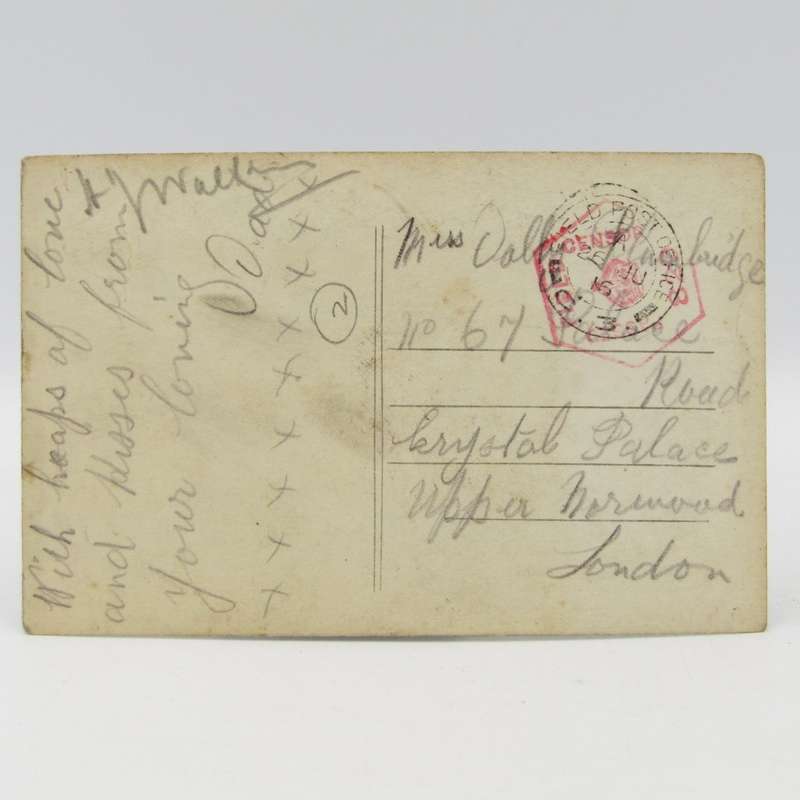 With heaps of love
and kisses from
your loving
Dad
x x x x x x x x
2
Miss Dolly
No 67 Palace
Road
Crystal Palace
Upper Norwood
London
FIELD POST OFFICE
CENSOR
JU
16